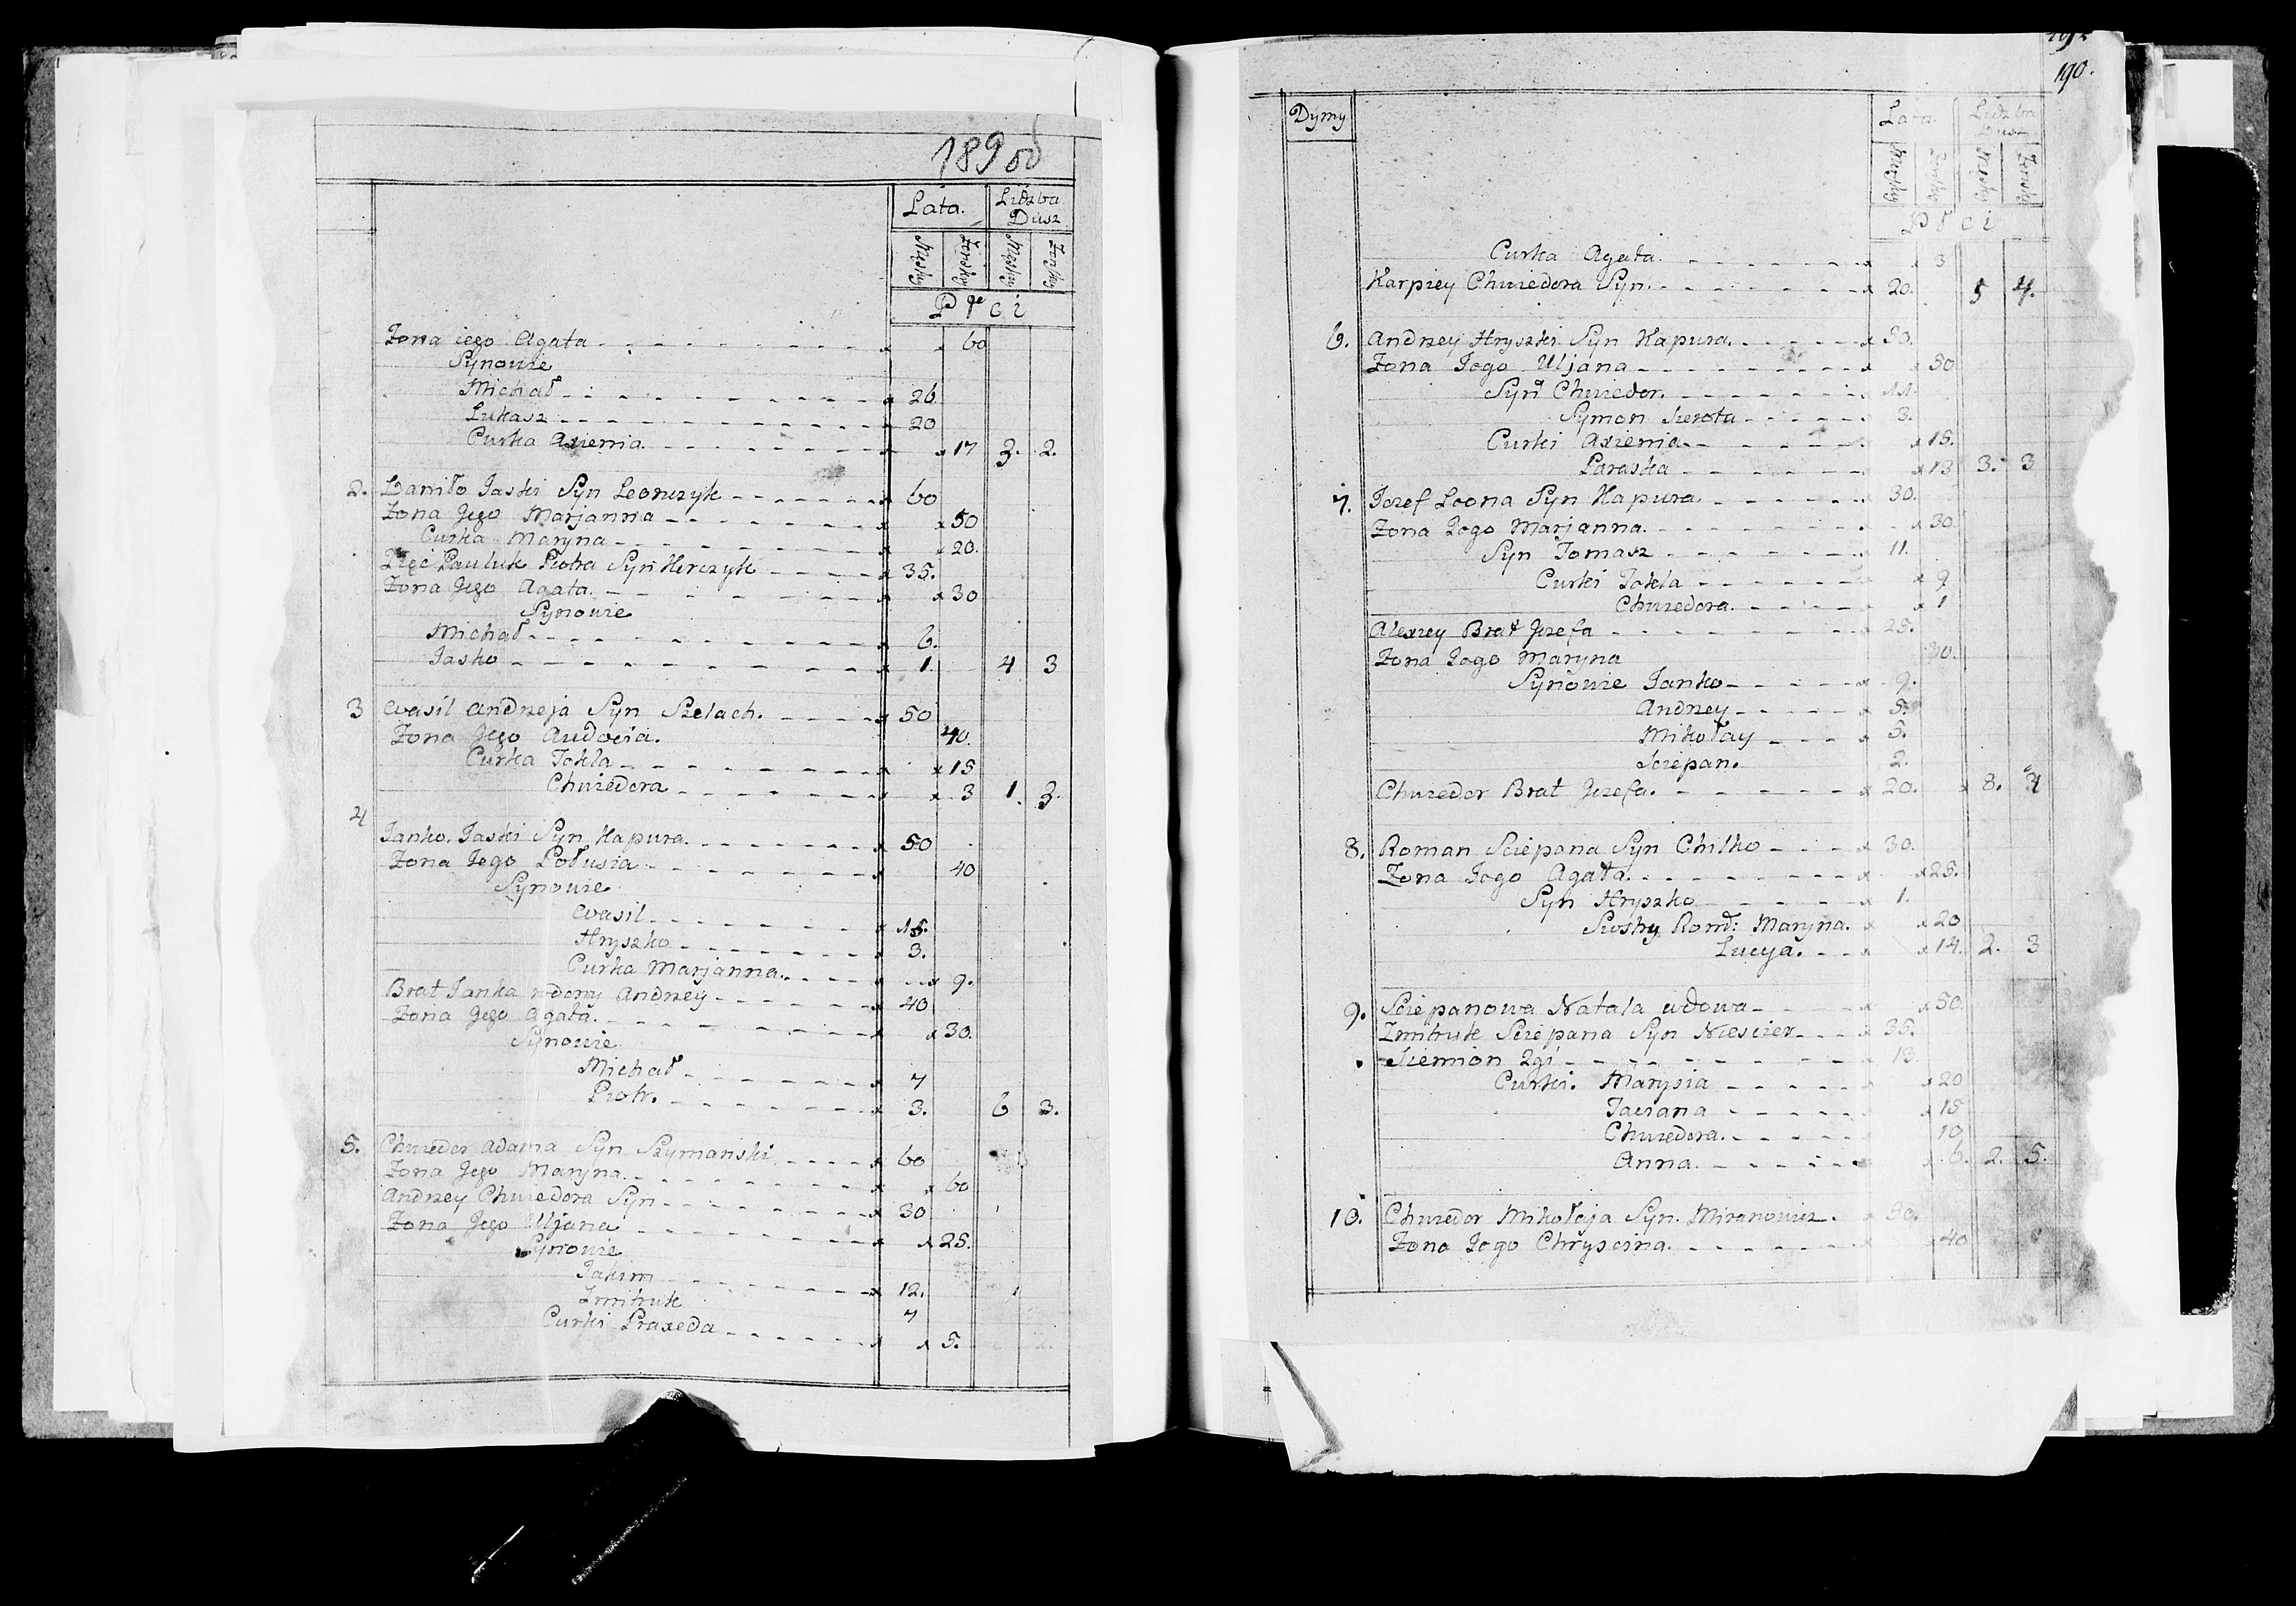 189 об
Lata. Lidzba Dusz
Męskiy Żenskiy Męskiy Żenskiy
Płci
Zona iego Agata 60
Synowie
Michał 26
Lukasz 20
Curka Axienia 17 3. 2.
2. Daniło Jaski Syn Leonczyk 60
Zona Jego Marjanna 50
Curka Maryna 20.
Zięć Pauluk Piotra Syn Herczyk 35.
Zona Jego Agata. 30
Synowie
Michał 6.
Jasko 1. 4 3
3 Wasil Andrzeja Syn Szelach. 50
Zona Jego Audocia. 40.
Curka Tekla 15
Chwiedora 3 1. 3.
4
Janko Jaski Syn Kapura. 50
Zona Jego Połusia 40
Synowie
Wasil 15.
Hryszko 3.
Curka Marjanna. 9.
Brat Janka rodony Andrzey 40
Zona Jego Agata. 30.
Synowie
Michał 7
Piotr. 3. 6 3.
5. Chwiedor Adama Syn Szymanski 60
Zona Jego Maryna. 60
Andrzey Chwiedora Syn 30
Zona Jego Uljana 25.
Synowie
Jakim 12.
Zmitruk 7
Curki Praxeda 5.
190.
Dymy Lata. Lidzba Dusz
Męskiy Żenskiy Męskiy Żenski
Płci
Curka Agata. 3
Karpiey Chwiedora Syn. 20. 5 4.
6. Andrzey Hryszki Syn Kapura. 50.
Zona Jego Uljana 50
Syn Chwiedor. 11.
Symon Sierota 3.
Curki Axienia 15.
Paraska 13 3. 3
7. Jozef Leona Syn Kapura. 30.
Zona Jego Marjanna. 30.
Syn Tomasz 11.
Curki Tekla 9
Chwiedora. 1
Alexiey Brat Jozefa 25.
Zona Jego Maryna 30.
Synowie Janko 9.
Andrzey 5.
Mikołay 3.
Sciepan. 2.
Chwiedor Brat Jozefa. 20. 8. 4
8. Roman Sciepana Syn Chilko 30.
Zona Jego Agata. 25.
Syn Hryszko 1.
Siostry Rom: Maryna. 20
Lucya. 14. 2. 3
9. Sciepanowa Natala wdowa 50.
Zmitruk Sciepana Syn Niescier 35.
Siemion 2gi 13.
Curki. Marysia 20
Taciana 15
Chwiedora. 10
Anna. 6. 2. 5.
10. Chwiedor Mikołaja Syn. Miranowicz. 50.
Zona Jego Chryscina. 40